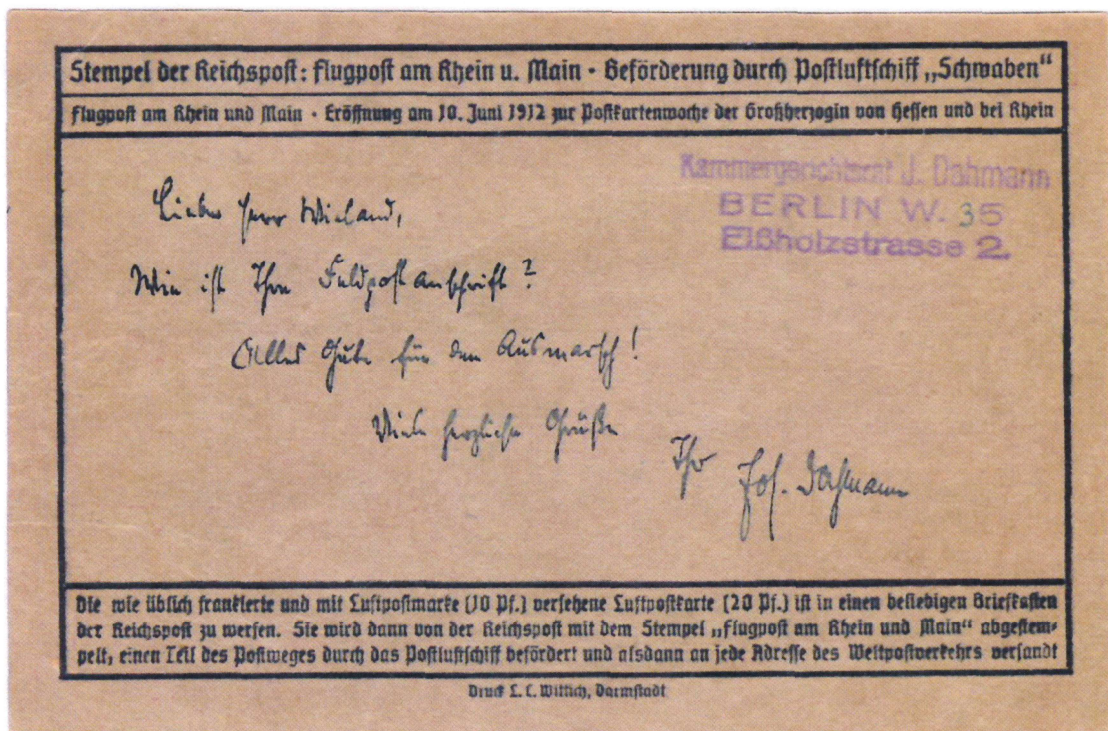 Stempel der Reichspost: Flugpost am Rhein u. Main · Beförderung durch Postluftschiff „Schwaben“
Flugpost am Rhein und Main · Eröffnung am 10. Juni 1912 zur Postkartenwoche der Großherzogin von Hessen und bei Rhein
Kammergerichtsrat J. Dahmann
BERLIN W. 35
Elßholzstrasse 2.
Lieber Herr Wieland,
Wie ist Ihre Feldpostanschrift?
Alles Gute für den Ausmarsch!
Viele herzliche Grüße
Ihr Jos. Dahmann
Die wie üblich frankierte und mit Luftpostmarke (10 Pf.) versehene Luftpostkarte (20 Pf.) ist in einen beliebigen Briefkasten
der Reichspost zu werfen. Sie wird dann von der Reichspost mit dem Stempel „Flugpost am Rhein und Main“ abgestem-
pelt, einen Teil des Postweges durch das Postluftschiff befördert und alsdann an jede Adresse des Weltpostverkehrs versandt
Druck L. C. Wittich, Darmstadt